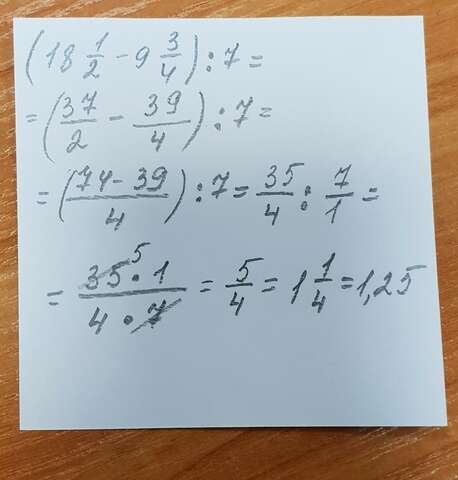 (18 1/2 - 9 3/4) : 7 =
= (37/2 - 39/4) : 7 =
= (74 - 39/4) : 7 = 35/4 : 7/1 =
= 35 5 · 1/4 · 7 = 5/4 = 1 1/4 = 1,25